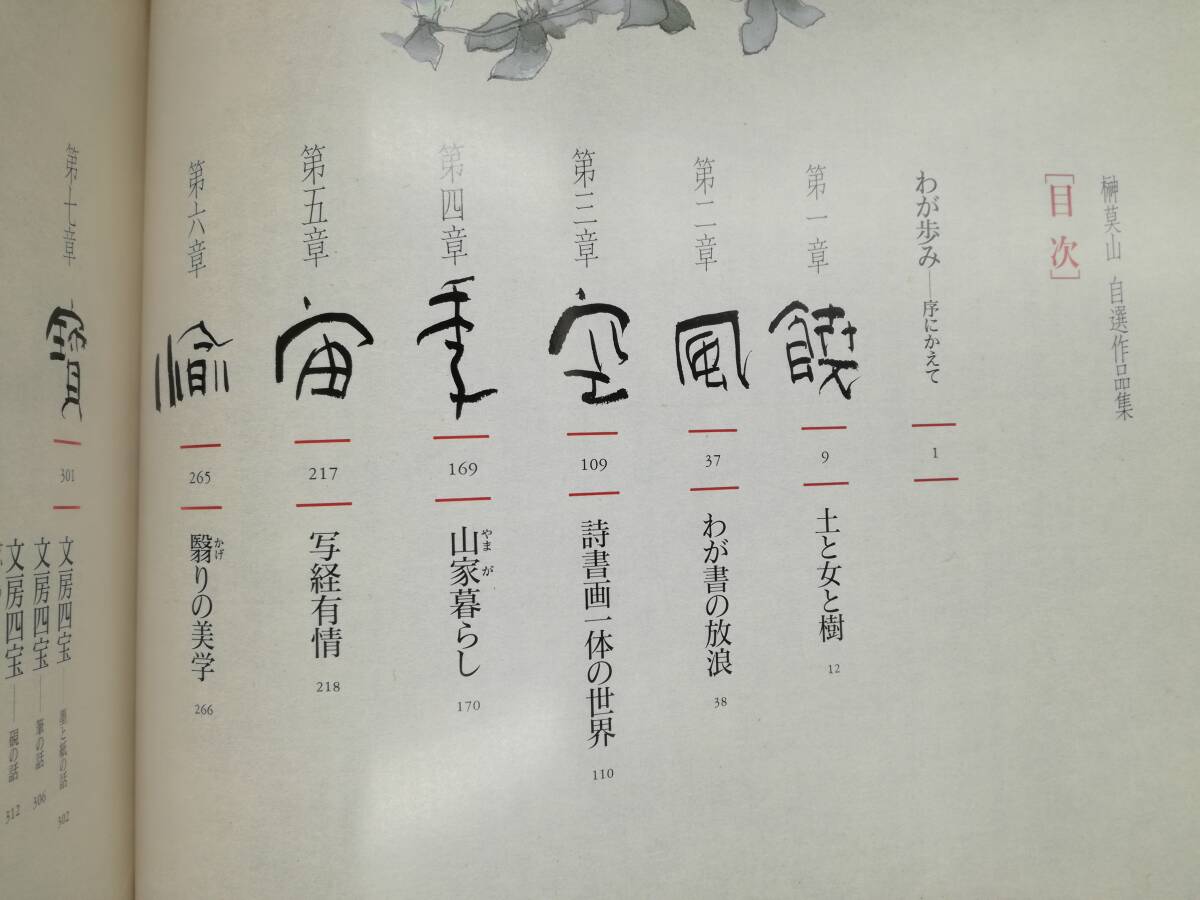 榊莫山 自選作品集
［目次］
わが歩み――序にかえて
1
第一章 饒
9
土と女と樹 12
第二章 風
37
わが書の放浪 38
第三章 空
109
詩書画一体の世界 110
第四章 季
169
山家暮らし 170
やまが
第五章 宙
217
写経有情 218
第六章 愉
265
翳りの美学 266
かげ
第七章 寶
301
文房四宝――墨と紙の話 302
文房四宝――筆の話 306
文房四宝――硯の話 312